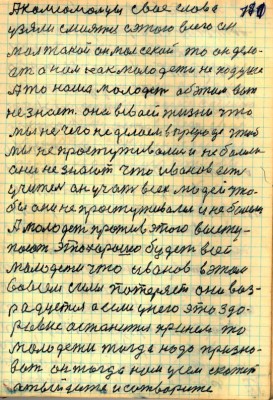 А комсомольцы свое слова
узяли смиятся с этого всего он
мол такой он мол сякой то он дело-
ат а нам как молодежи не подуше
А то наша молодеж об этим вот
не знает. она в свай жизни что
мы нечего не делаем в природе чтоб
мы не простуживалися и не болели
они не знают что иванов есть
учител он учат всех людей что-
бы они не простуживалис и не болели
А молодеж против этого высту-
пают это хорошо будет всей
молодежи что иванов в этом
совсем силы потеряет они воз-
радуется а если у него это здо-
ровие останится прежнем то
молодежи тогда надо призно-
ват он тогда нам усем скажет
отыйдите и сотворите